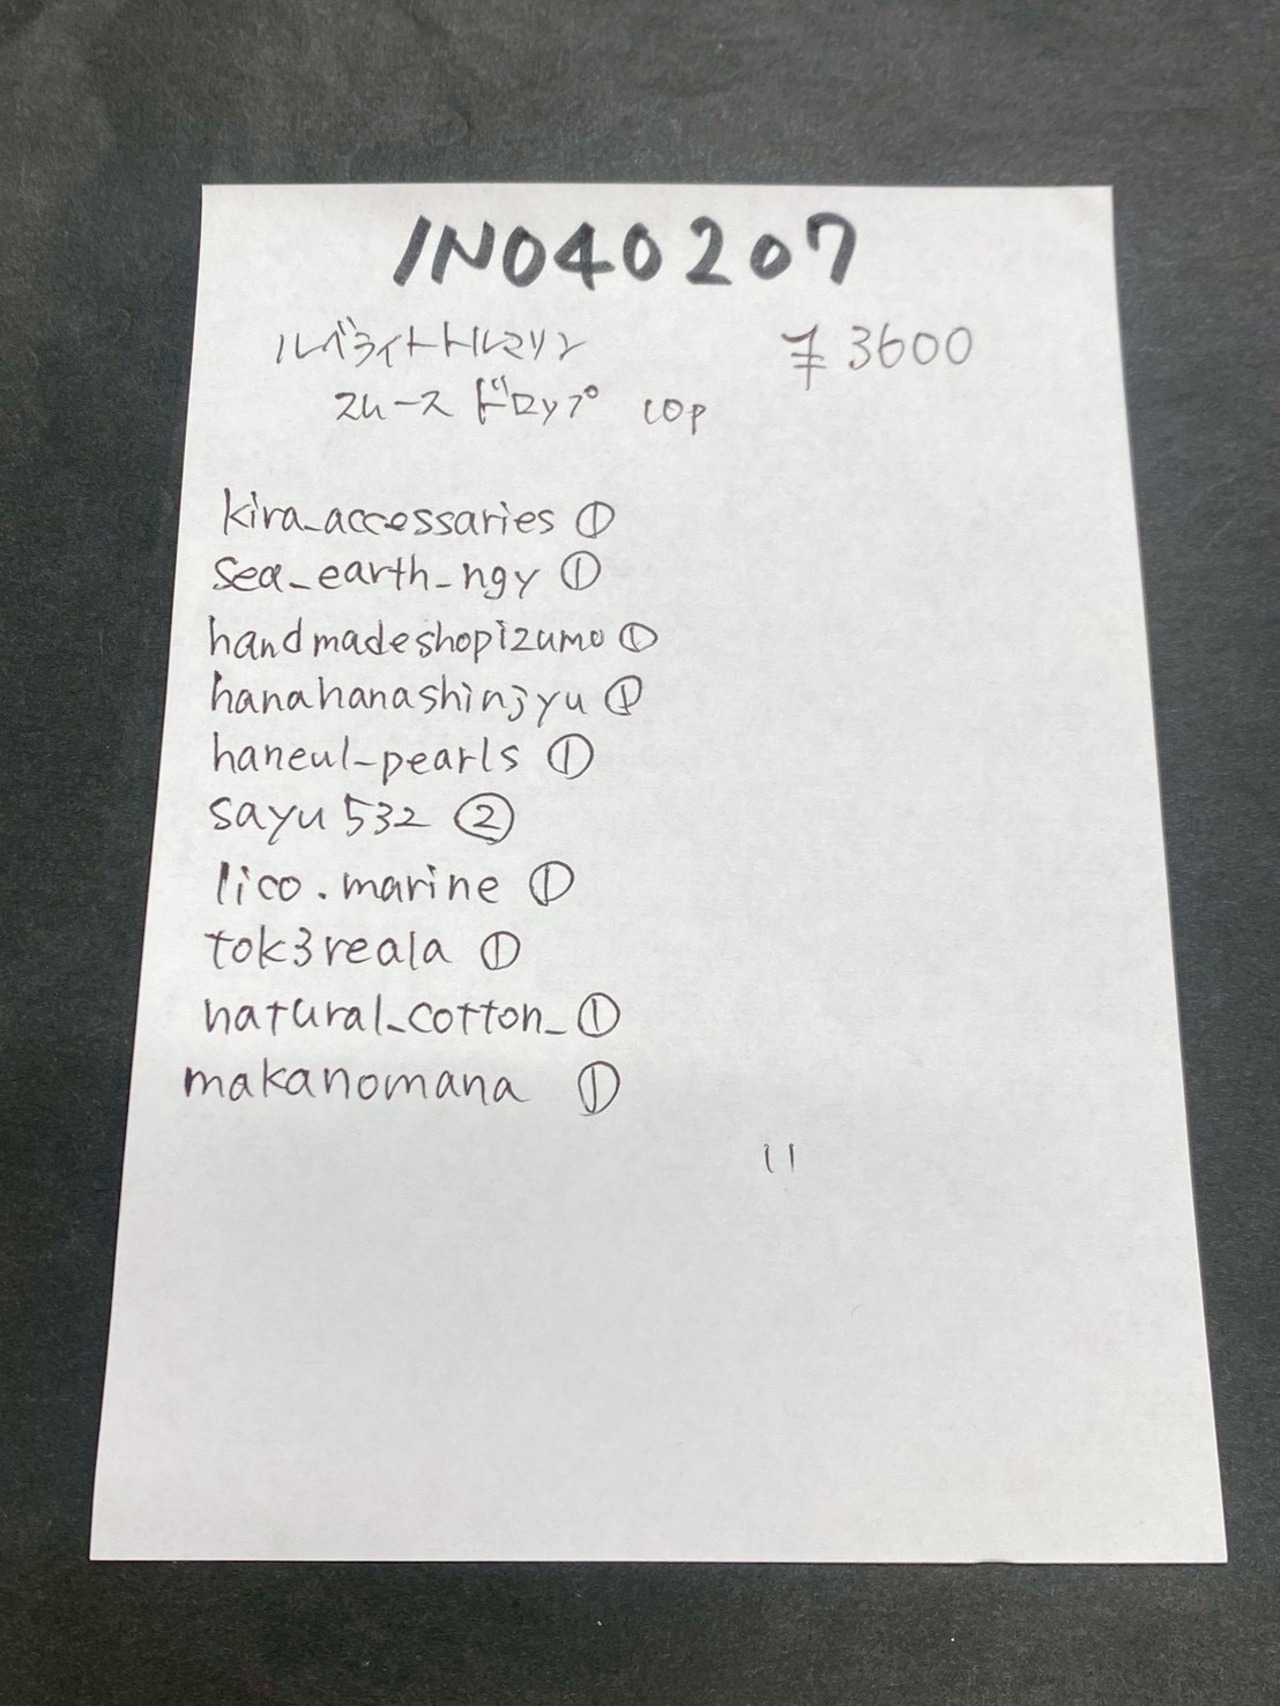 IN040207
ルベライトトルマリン ¥3600
スムース ドロップ 10p
kira_accessaries ①
sea_earth_ngy ①
handmadeshopizumo ①
hanahanashinjyu ①
haneul_pearls ①
sayu532 ②
lico.marine ①
tok3reala ①
natural_cotton_ ①
makanomana ①
11